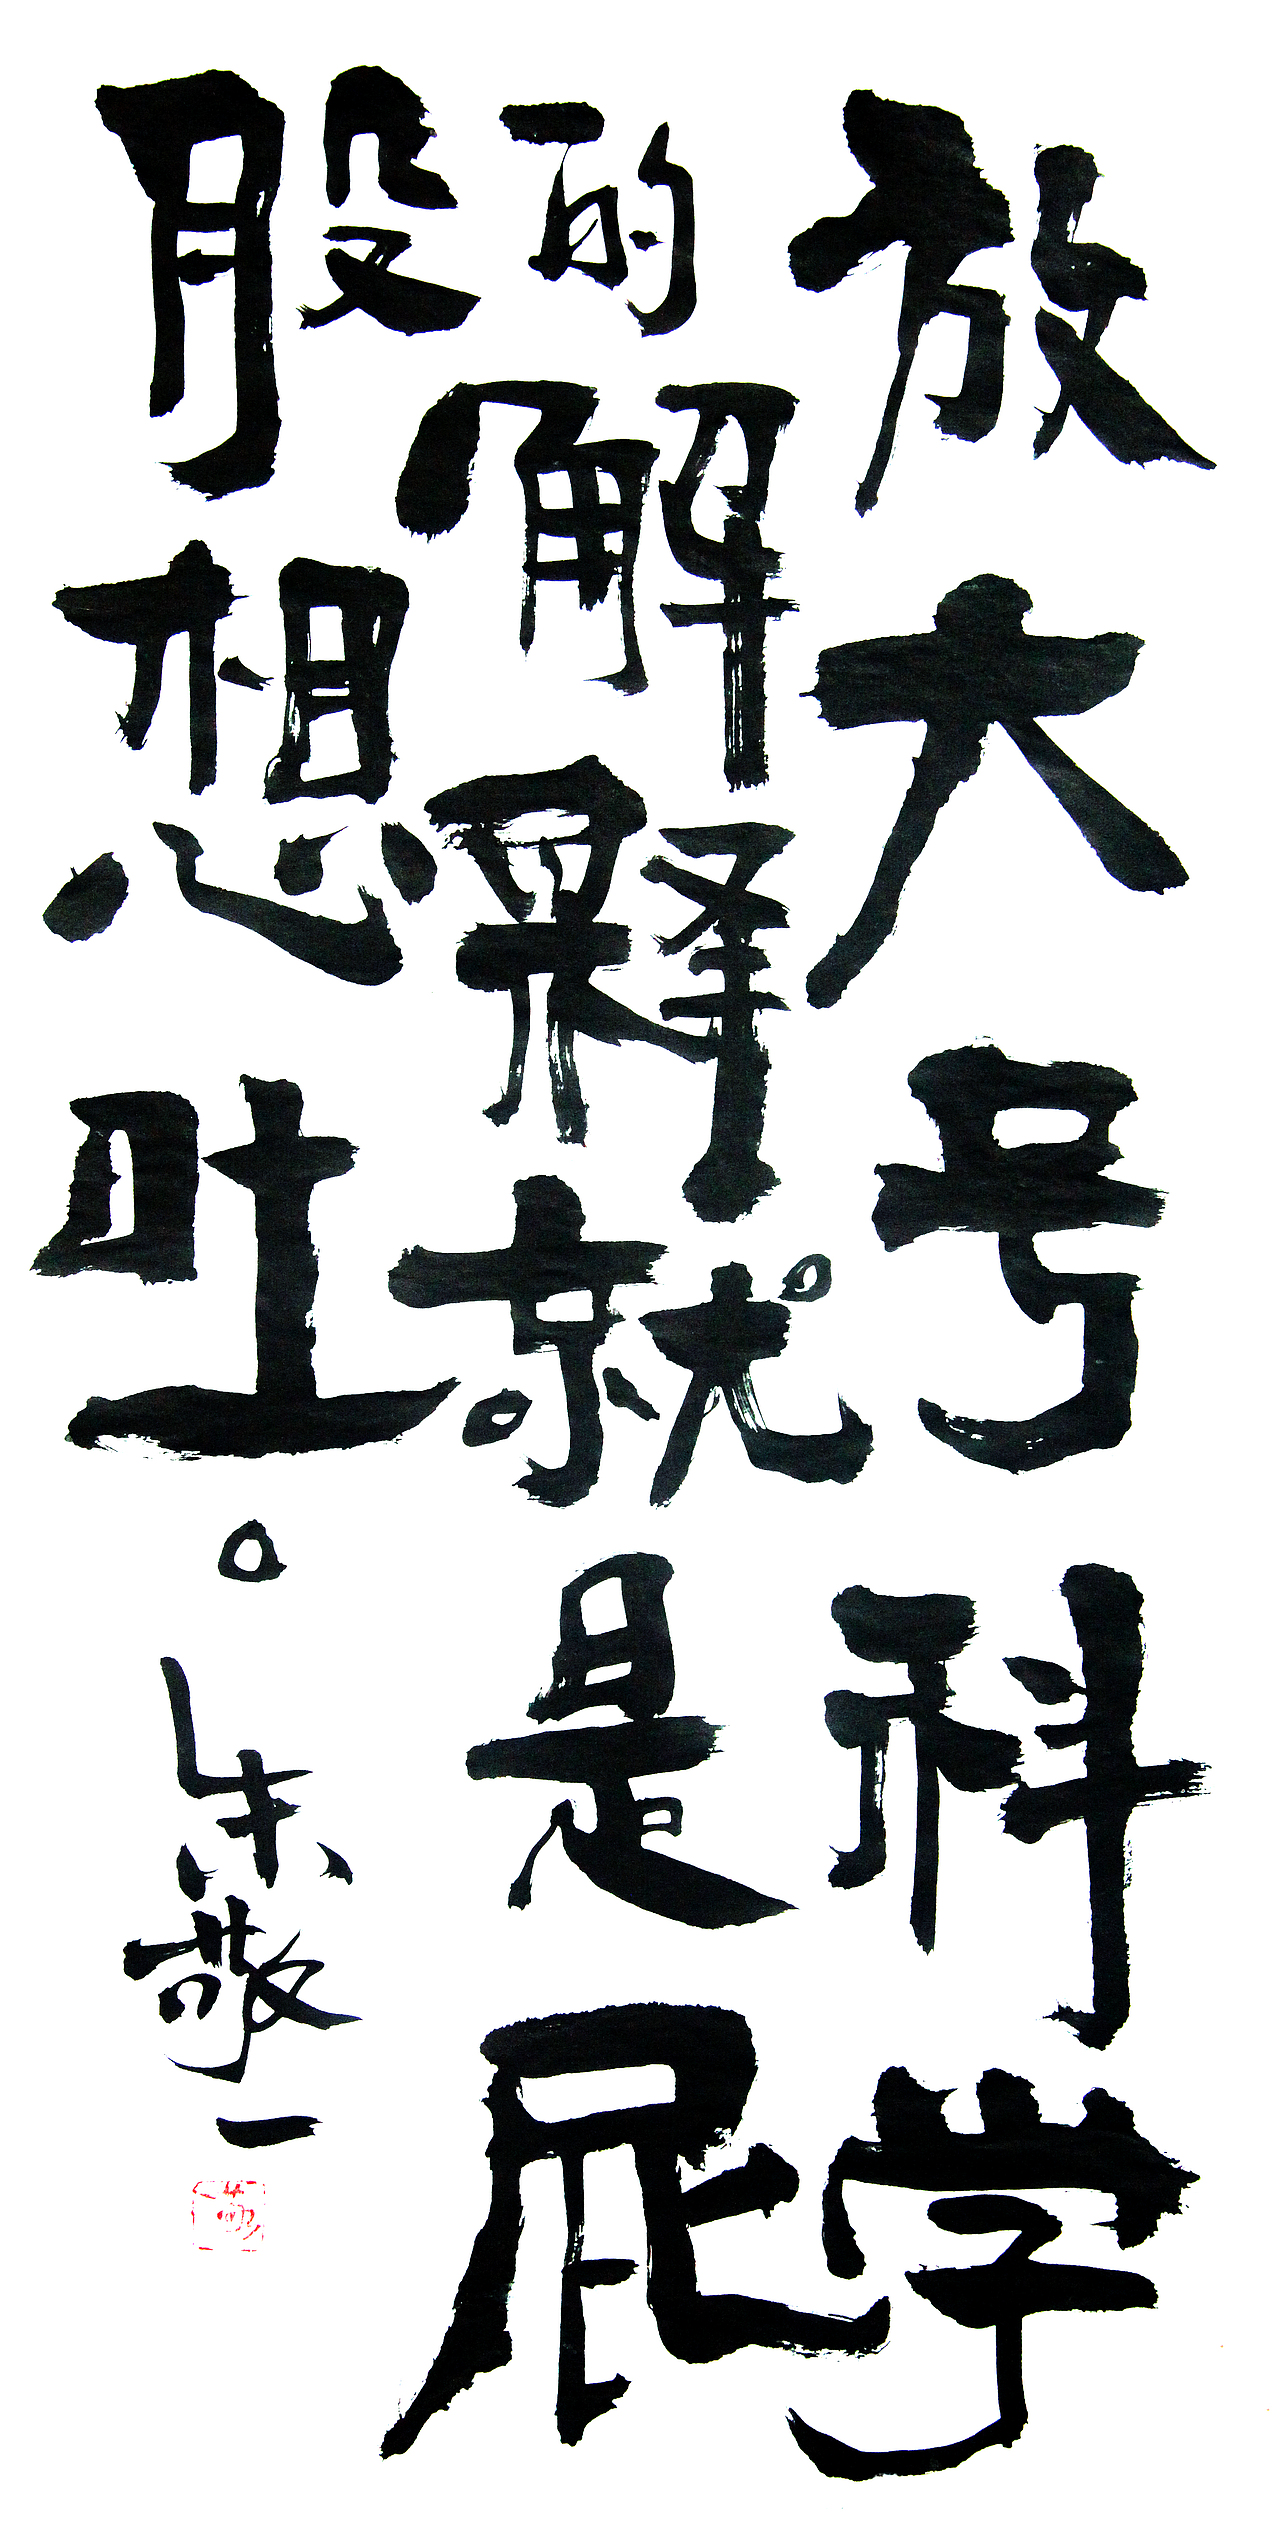 放大号科学
的解释就是屁
股想吐。朱敬一